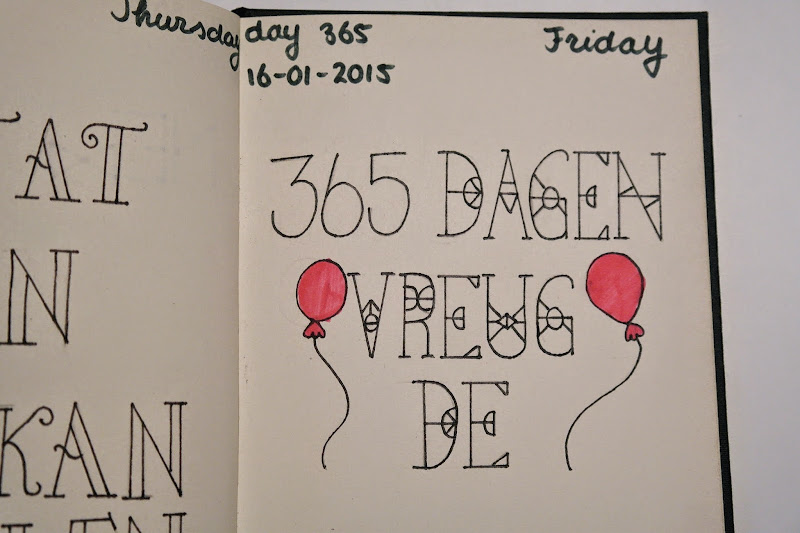 Thursday
TAT
N
KAN
day 365
Friday
16-01-2015
365 DAGEN
VREUG
DE